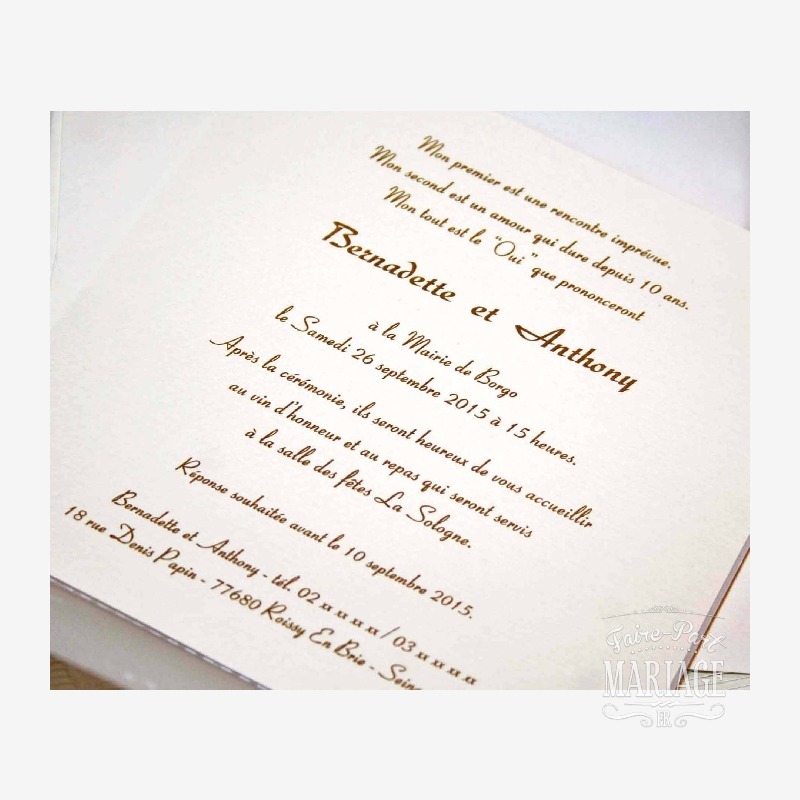 Mon premier est une rencontre imprévue.
Mon second est un amour qui dure depuis 10 ans.
Mon tout est le "Oui" que prononceront
Bernadette et Anthony
à la Mairie de Borgo
le Samedi 26 septembre 2015 à 15 heures.
Après la cérémonie, ils seront heureux de vous accueillir
au vin d'honneur et au repas qui seront servis
à la salle des fêtes La Sologne.
Réponse souhaitée avant le 10 septembre 2015.
Bernadette et Anthony - tél. 02 xx xx xx xx / 03 xx xx xx xx
18 rue Denis Papin - 77680 Roissy En Brie - Seine
Faire-Part
MARIAGE
FR